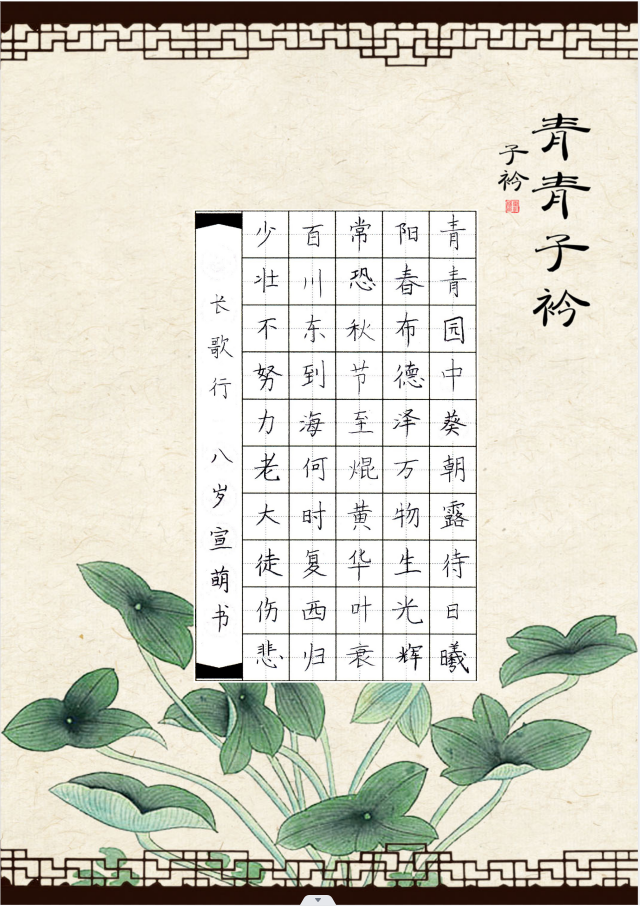 青青子衿
子衿
青青园中葵朝露待日曦
阳春布德泽万物生光辉
常恐秋节至焜黄华叶衰
百川东到海何时复西归
少壮不努力老大徒伤悲
长歌行 八岁宣萌书